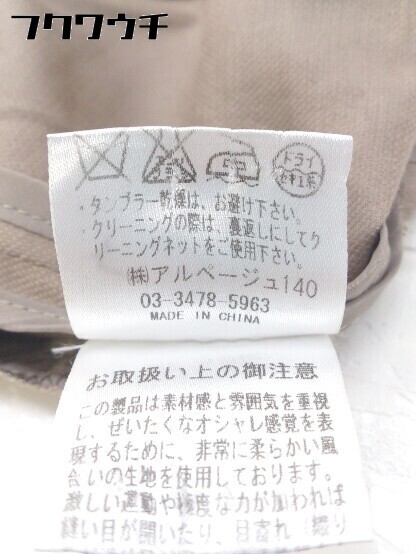 フクワウチ
ドライ
セキユ系
・タンブラー乾燥は、お避け下さい。
・クリーニングの際は、裏返しにしてク
リーニングネットをご使用下さい。
㈱アルページュ140
03-3478-5963
MADE IN CHINA
お取扱い上の御注意
この製品は素材感と雰囲気を重視
し、ぜいたくなオシャレ感覚を表
現するために、非常に柔らかい風
合いの生地を使用しております。
激しい運動や極度な力が加われば
縫い目が開いたり、目寄れ（織り